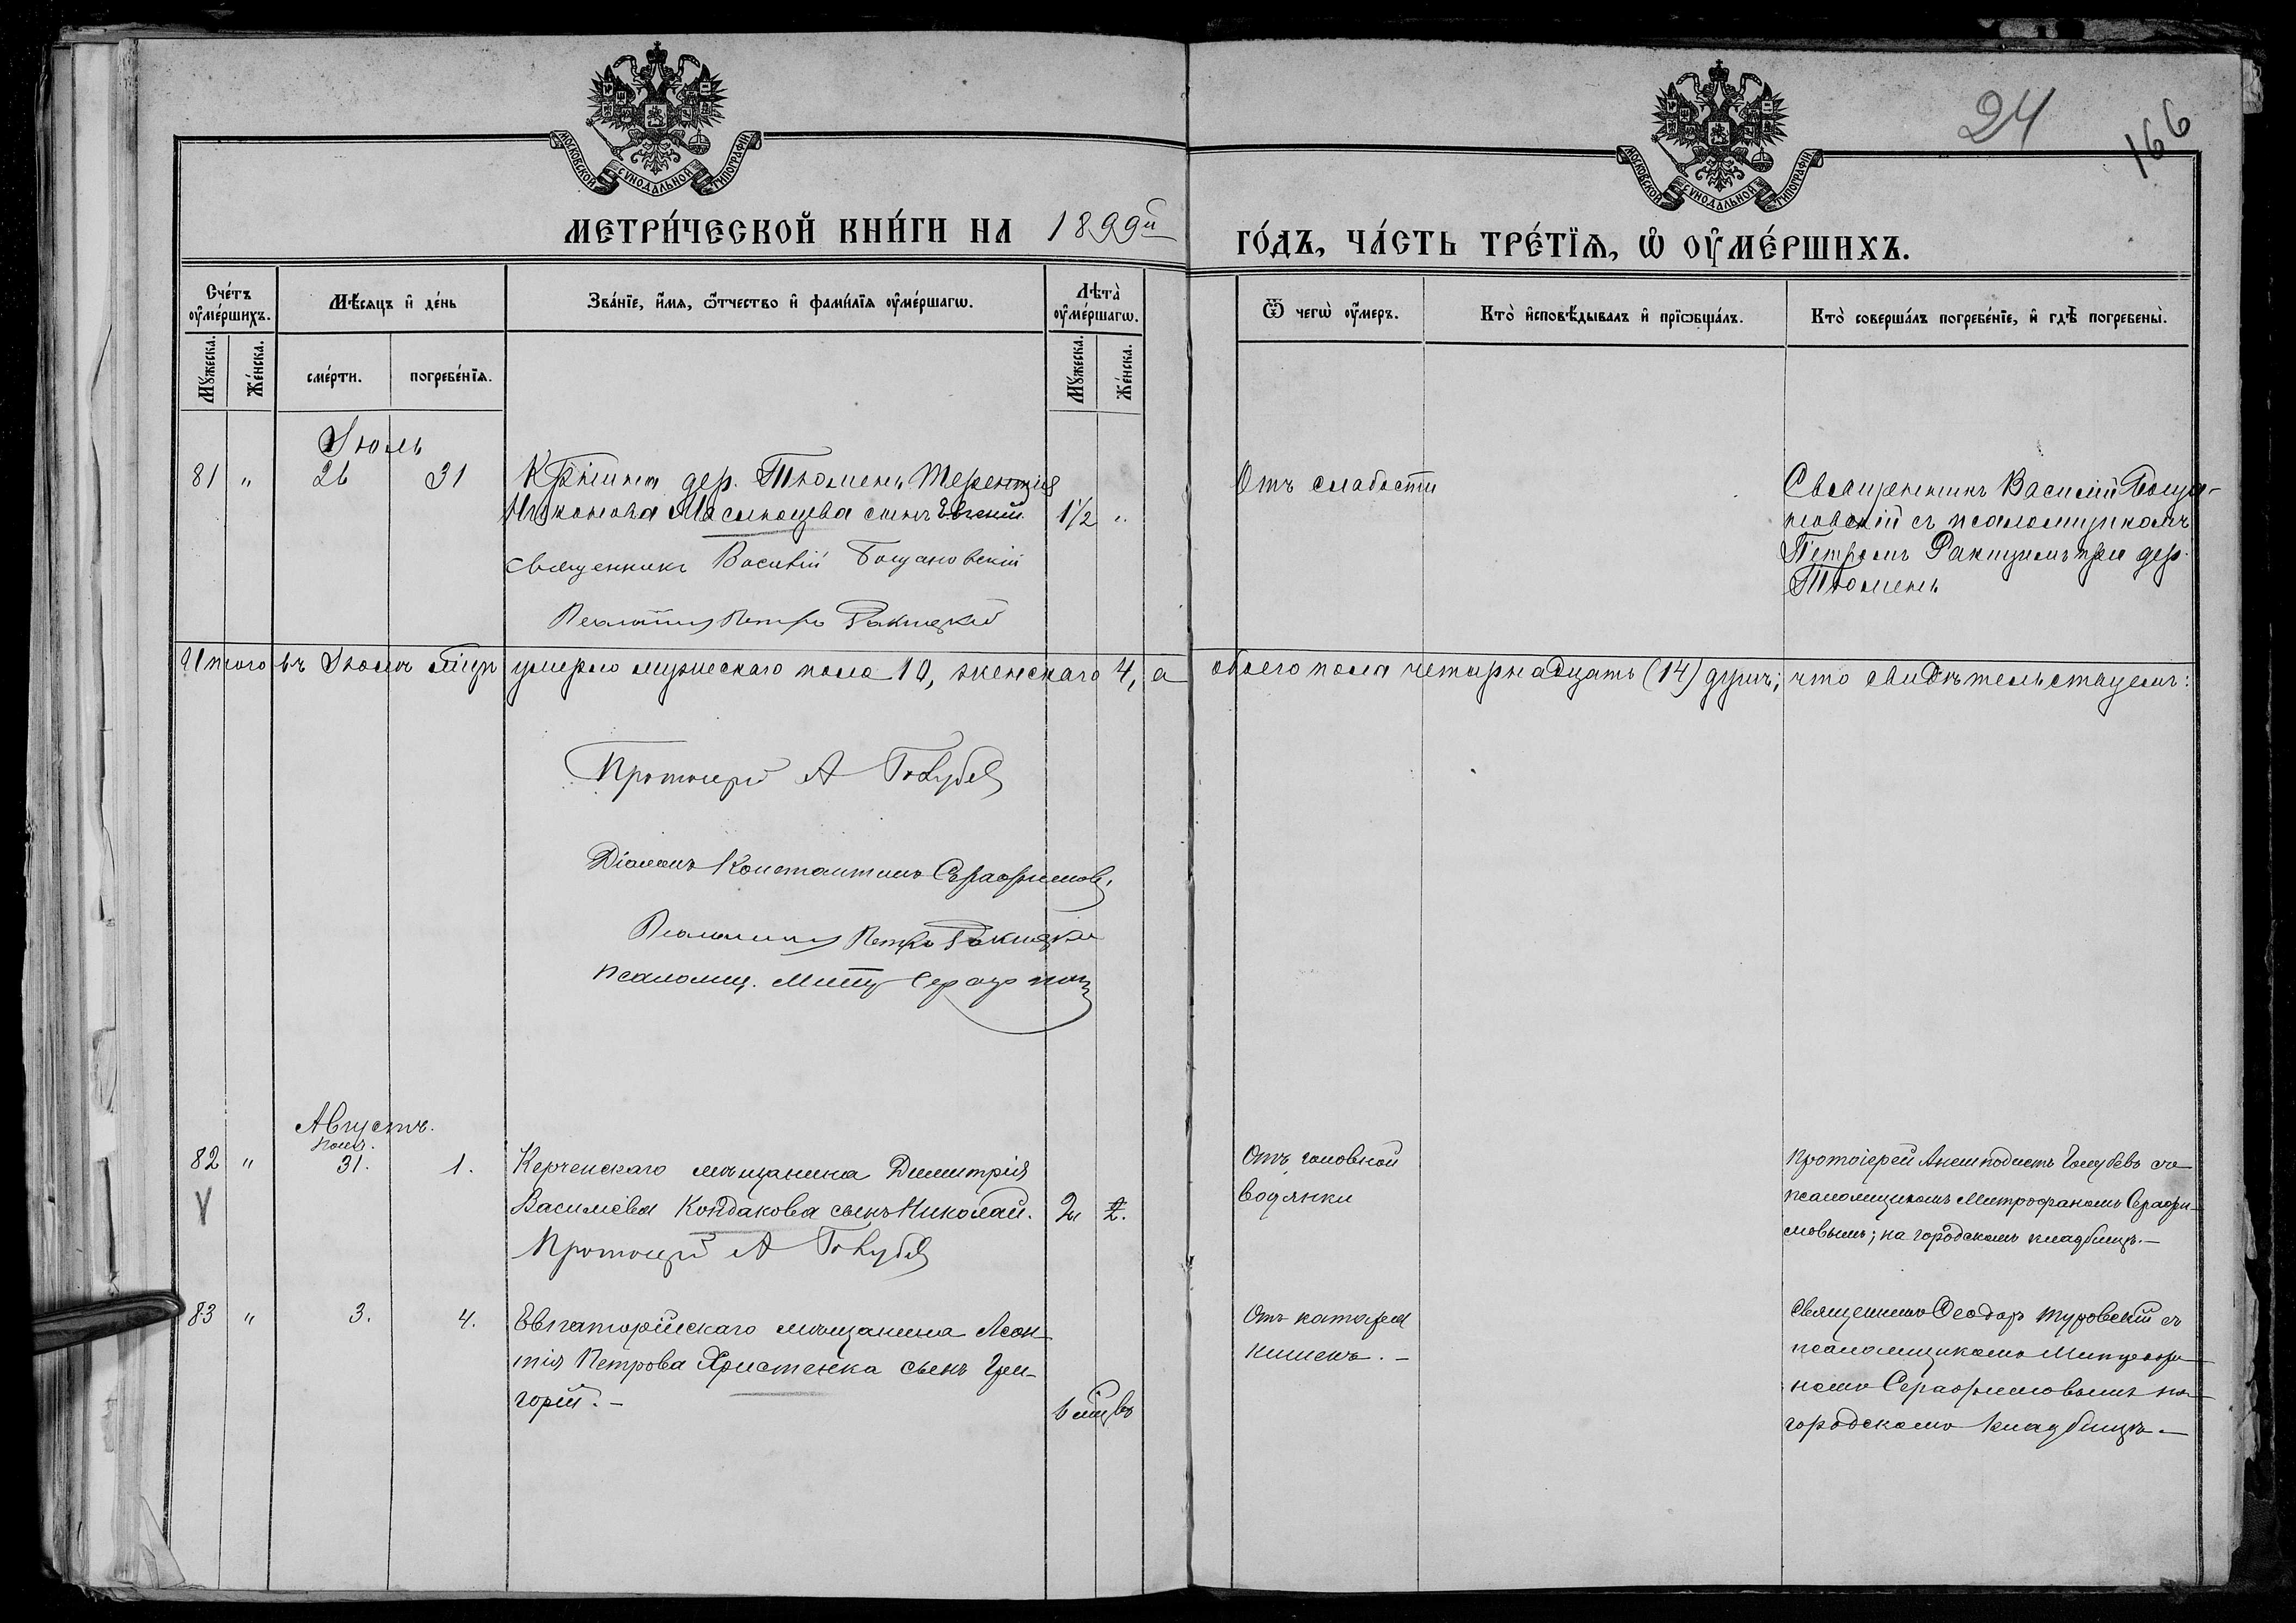 24
166
МОСКОВСКОЙ СѴНОДАЛЬНОЙ ТИПОГРАФІИ
МОСКОВСКОЙ СѴНОДАЛЬНОЙ ТИПОГРАФІИ
МЕТРИ́ЧЕСКОЙ КНИ́ГИ НА 1899й
ГО́ДЪ, ЧА́СТЬ ТРЕ́ТЇѦ, Ѡ҆ ОУ҆МЕ́РШИХЪ.
Сче́тъ оу҆ме́ршихъ.
Мꙋ́жеска.
Же́нска.
Мѣ́сяцъ и҆ де́нь
сме́рти.
погребе́нїѧ.
Зва́нїе, и҆́мѧ, ѻ҆́тчество и҆ фами́лїѧ оу҆ме́ршагѡ.
Лѣ́та оу҆ме́ршагѡ.
Мꙋ́жеска.
Же́нска.
Ѿ чегѡ̀ оу҆́меръ.
Кто̀ и҆сповѣ́дывалъ и҆ прїѻбща́лъ.
Кто̀ соверша́лъ погребе́нїе, и҆ гдѣ̀ погребены̀.
Іюль
81 " 26 31
дер. Тюмень Терентія
сынъ Евгеній. 1½ "
Священникъ Василій Бощановскій
Петръ Ракицкій
Отъ слабости
Священникъ Василій Боща-
новскій съ псаломщикомъ
Петромъ Ракицкимъ при дер.
Тюмень
Итого въ Іюлѣ мцѣ умерло мужескаго пола 10, женскаго 4, а обоего пола четырнадцать (14) душъ; что свидѣтельствуемъ:
Протоіерей А Голубев
Діаконъ Константинъ Серафимовъ
Псаломщикъ Петръ Ракицкій
Псаломщ. Митр Серафимов
Августъ.
Іюль.
82 " 31. 1.
V
Керченскаго мѣщанина Димитрія
Василіева Кондакова сынъ Николай. 2 г. 2.
Протоіерей А Голубев
Отъ головной
водянки
Протоіерей Анемподистъ Голубевъ съ
псаломщикомъ Митрофаномъ Серафи-
мовымъ; на городскомъ кладбищѣ.—
83 " 3. 4.
Евпаторійскаго мѣщанина Леон-
тія Петрова Христенка сынъ Гри-
горій.— 6 мцвъ
Отъ катарра
кишекъ.—
Священникъ Ѳеодоръ Туровскій съ
псаломщикомъ Митрофа-
номъ Серафимовымъ на
городскомъ кладбищѣ.—